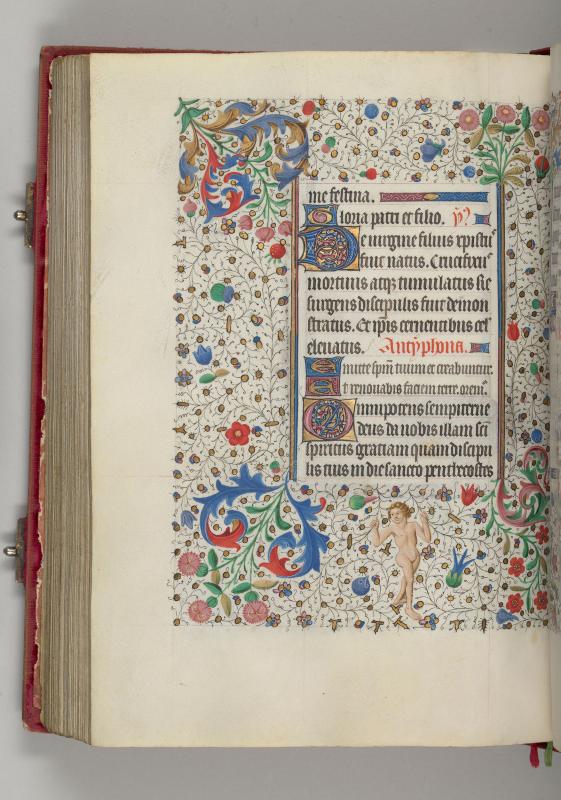 me festina.
Gloria patri et filio. ps̄
De uirgine filius xpisti
fuit natus. Crucifixꝰ
mortuus atq; tumulatus sic
surgens discipulis fuit demon
stratus. Et ip̄is cernentibus cel
eleuatus. Antyphona.
Emitte spm̄ tuum et creabuntur.
Et renouabis faciem terre. orem̄ꝰ
Omnipotens sempiterne
deus da nobis illam sci
spiritus gratiam quam discipu
lis tuis in die sancto penthecostes